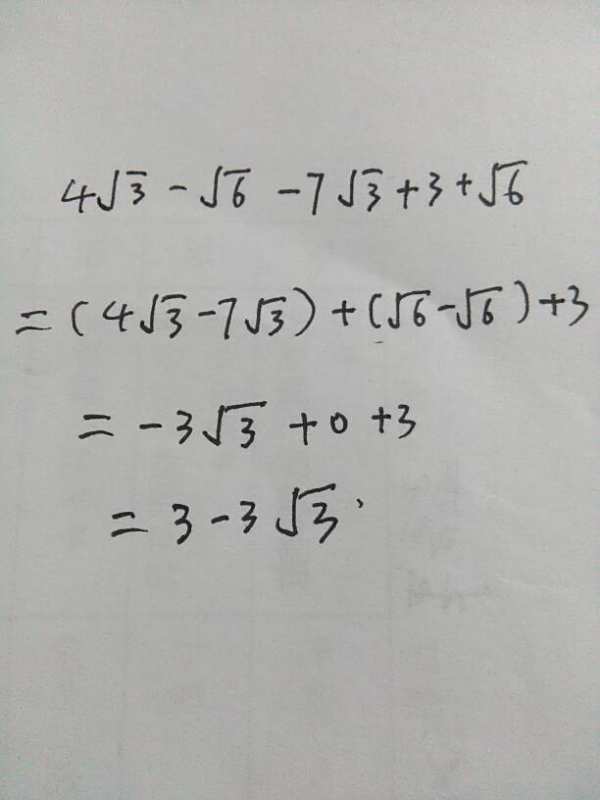 4√3 - √6 - 7√3 + 3 + √6
= (4√3 - 7√3) + (√6 - √6) + 3
= -3√3 + 0 + 3
= 3 - 3√3